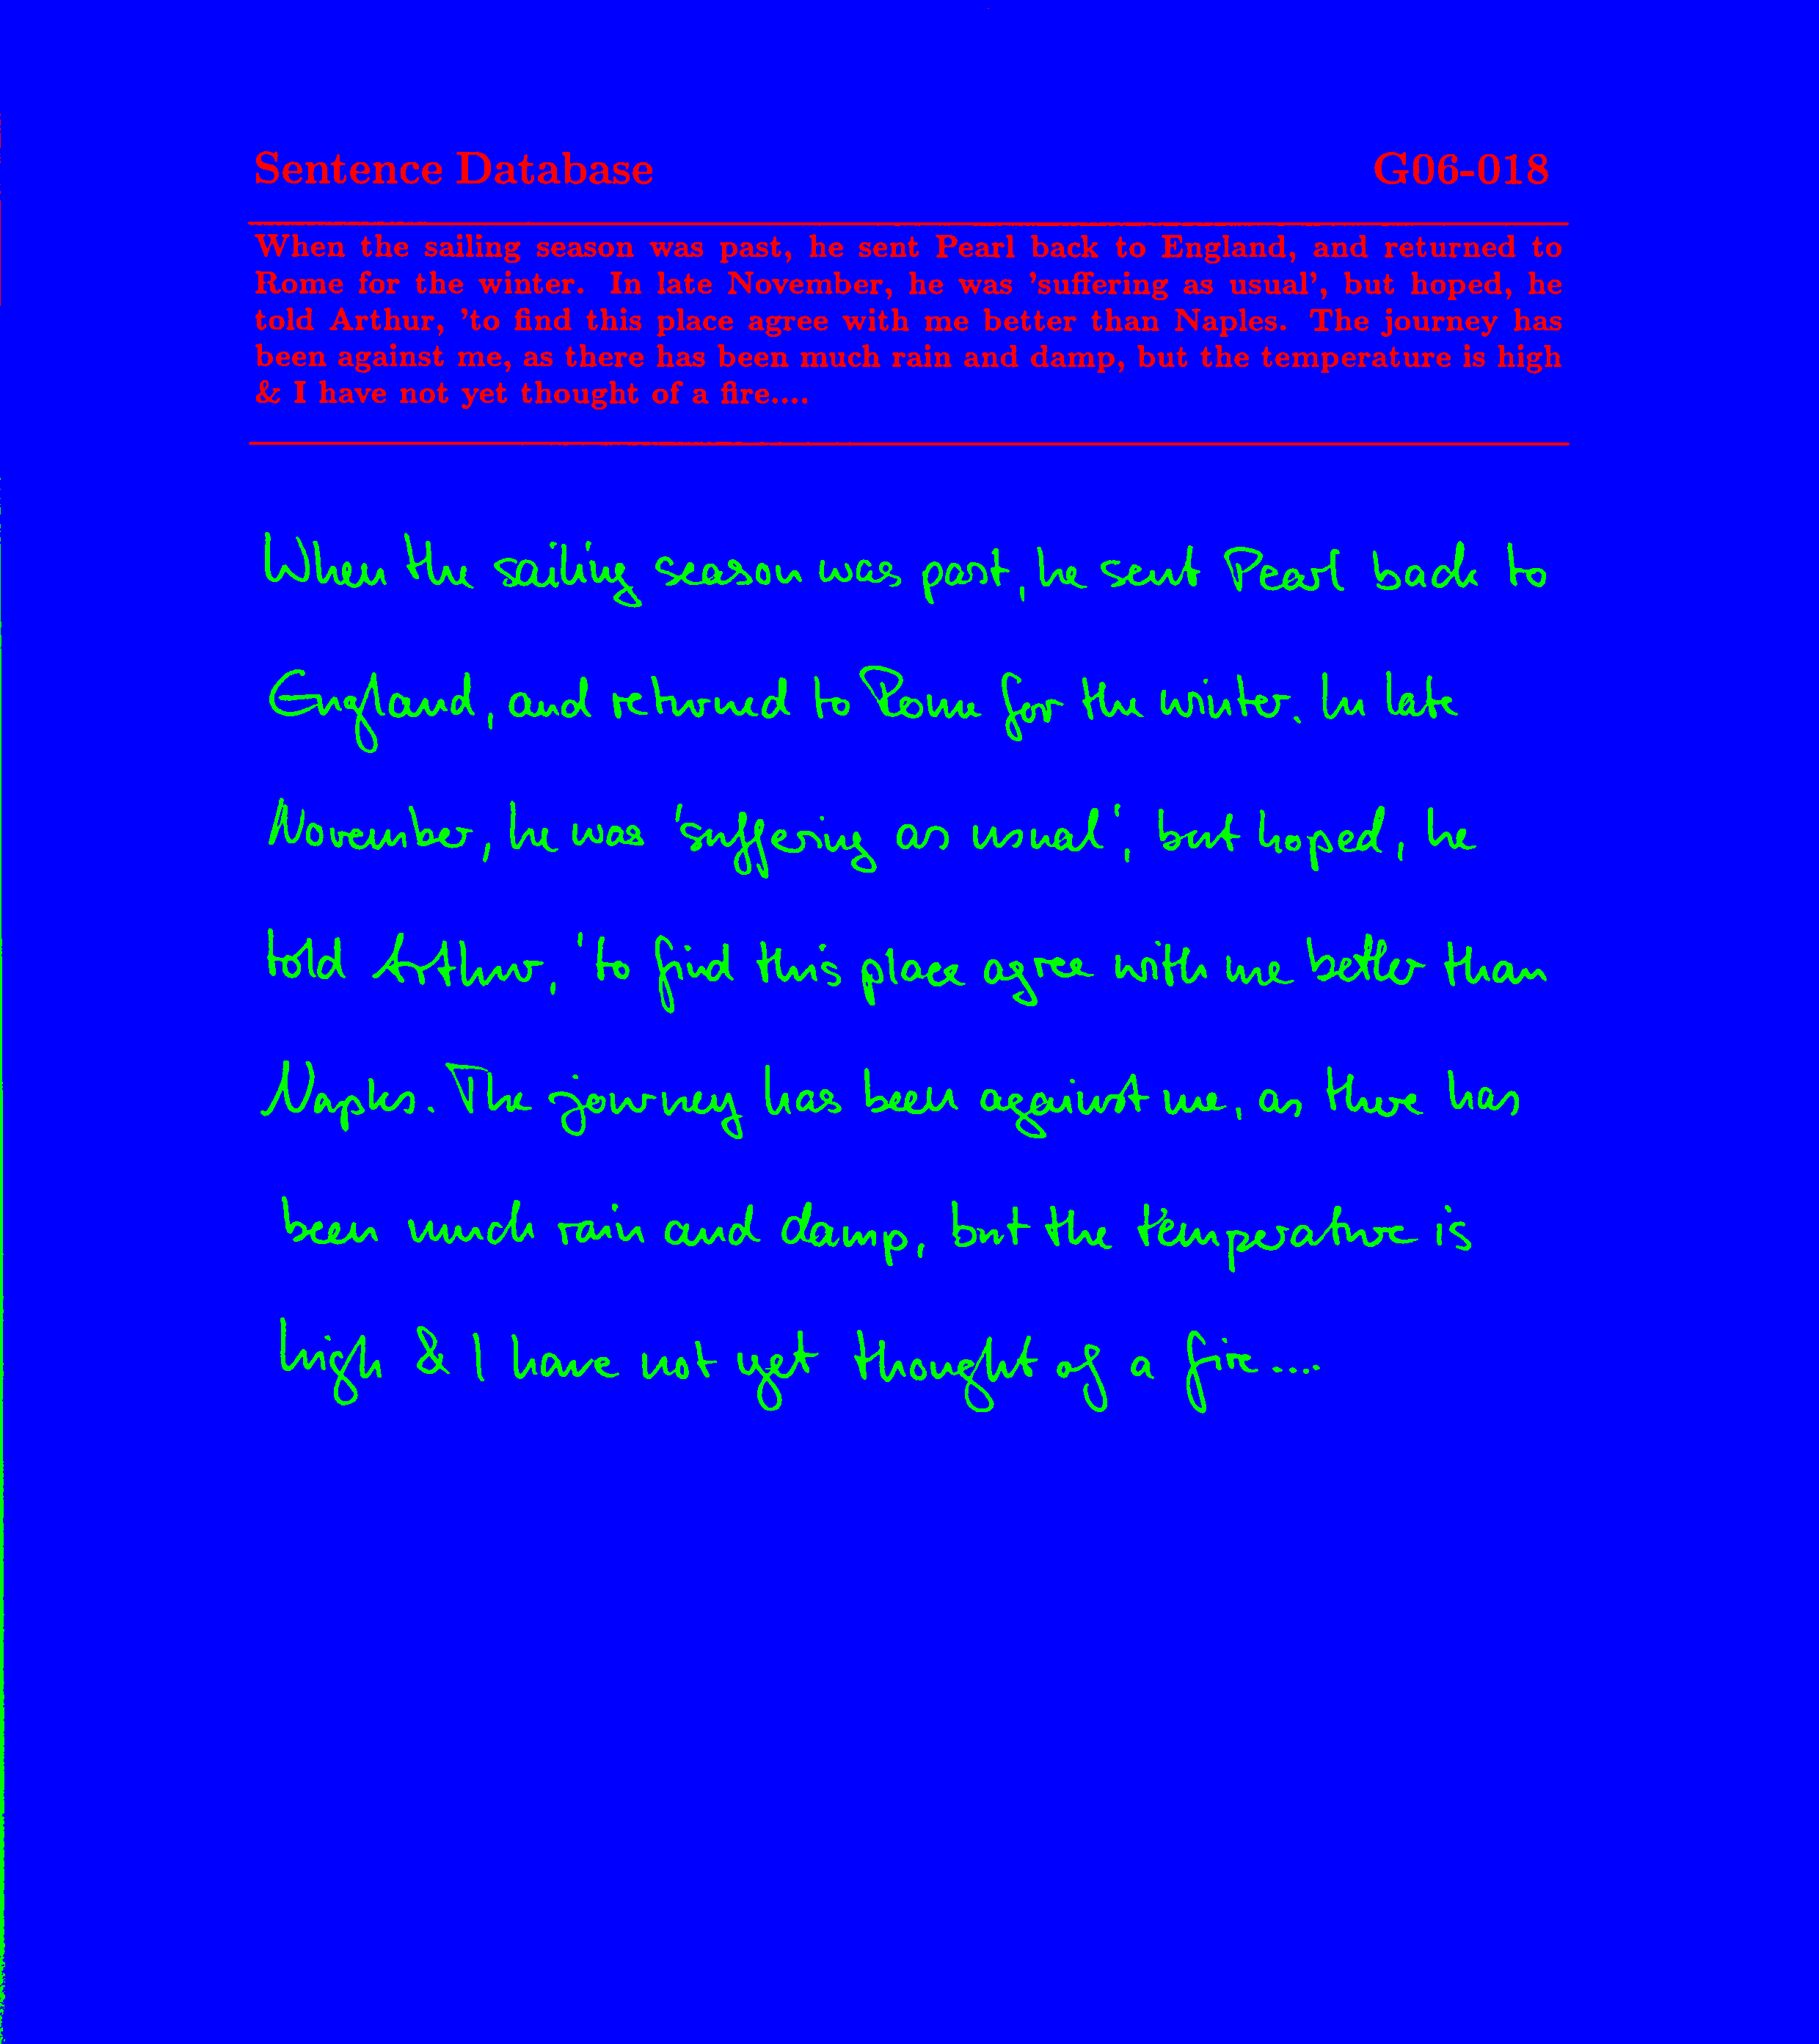 Sentence Database G06-018
When the sailing season was past, he sent Pearl back to England, and returned to
Rome for the winter. In late November, he was 'suffering as usual', but hoped, he
told Arthur, 'to find this place agree with me better than Naples. The journey has
been against me, as there has been much rain and damp, but the temperature is high
& I have not yet thought of a fire....
When the sailing season was past, he sent Pearl back to
England, and returned to Rome for the winter. In late
November, he was 'suffering as usual', but hoped, he
told Arthur, 'to find this place agree with me better than
Naples. The journey has been against me, as there has
been much rain and damp, but the temperature is
high & I have not yet thought of a fire....